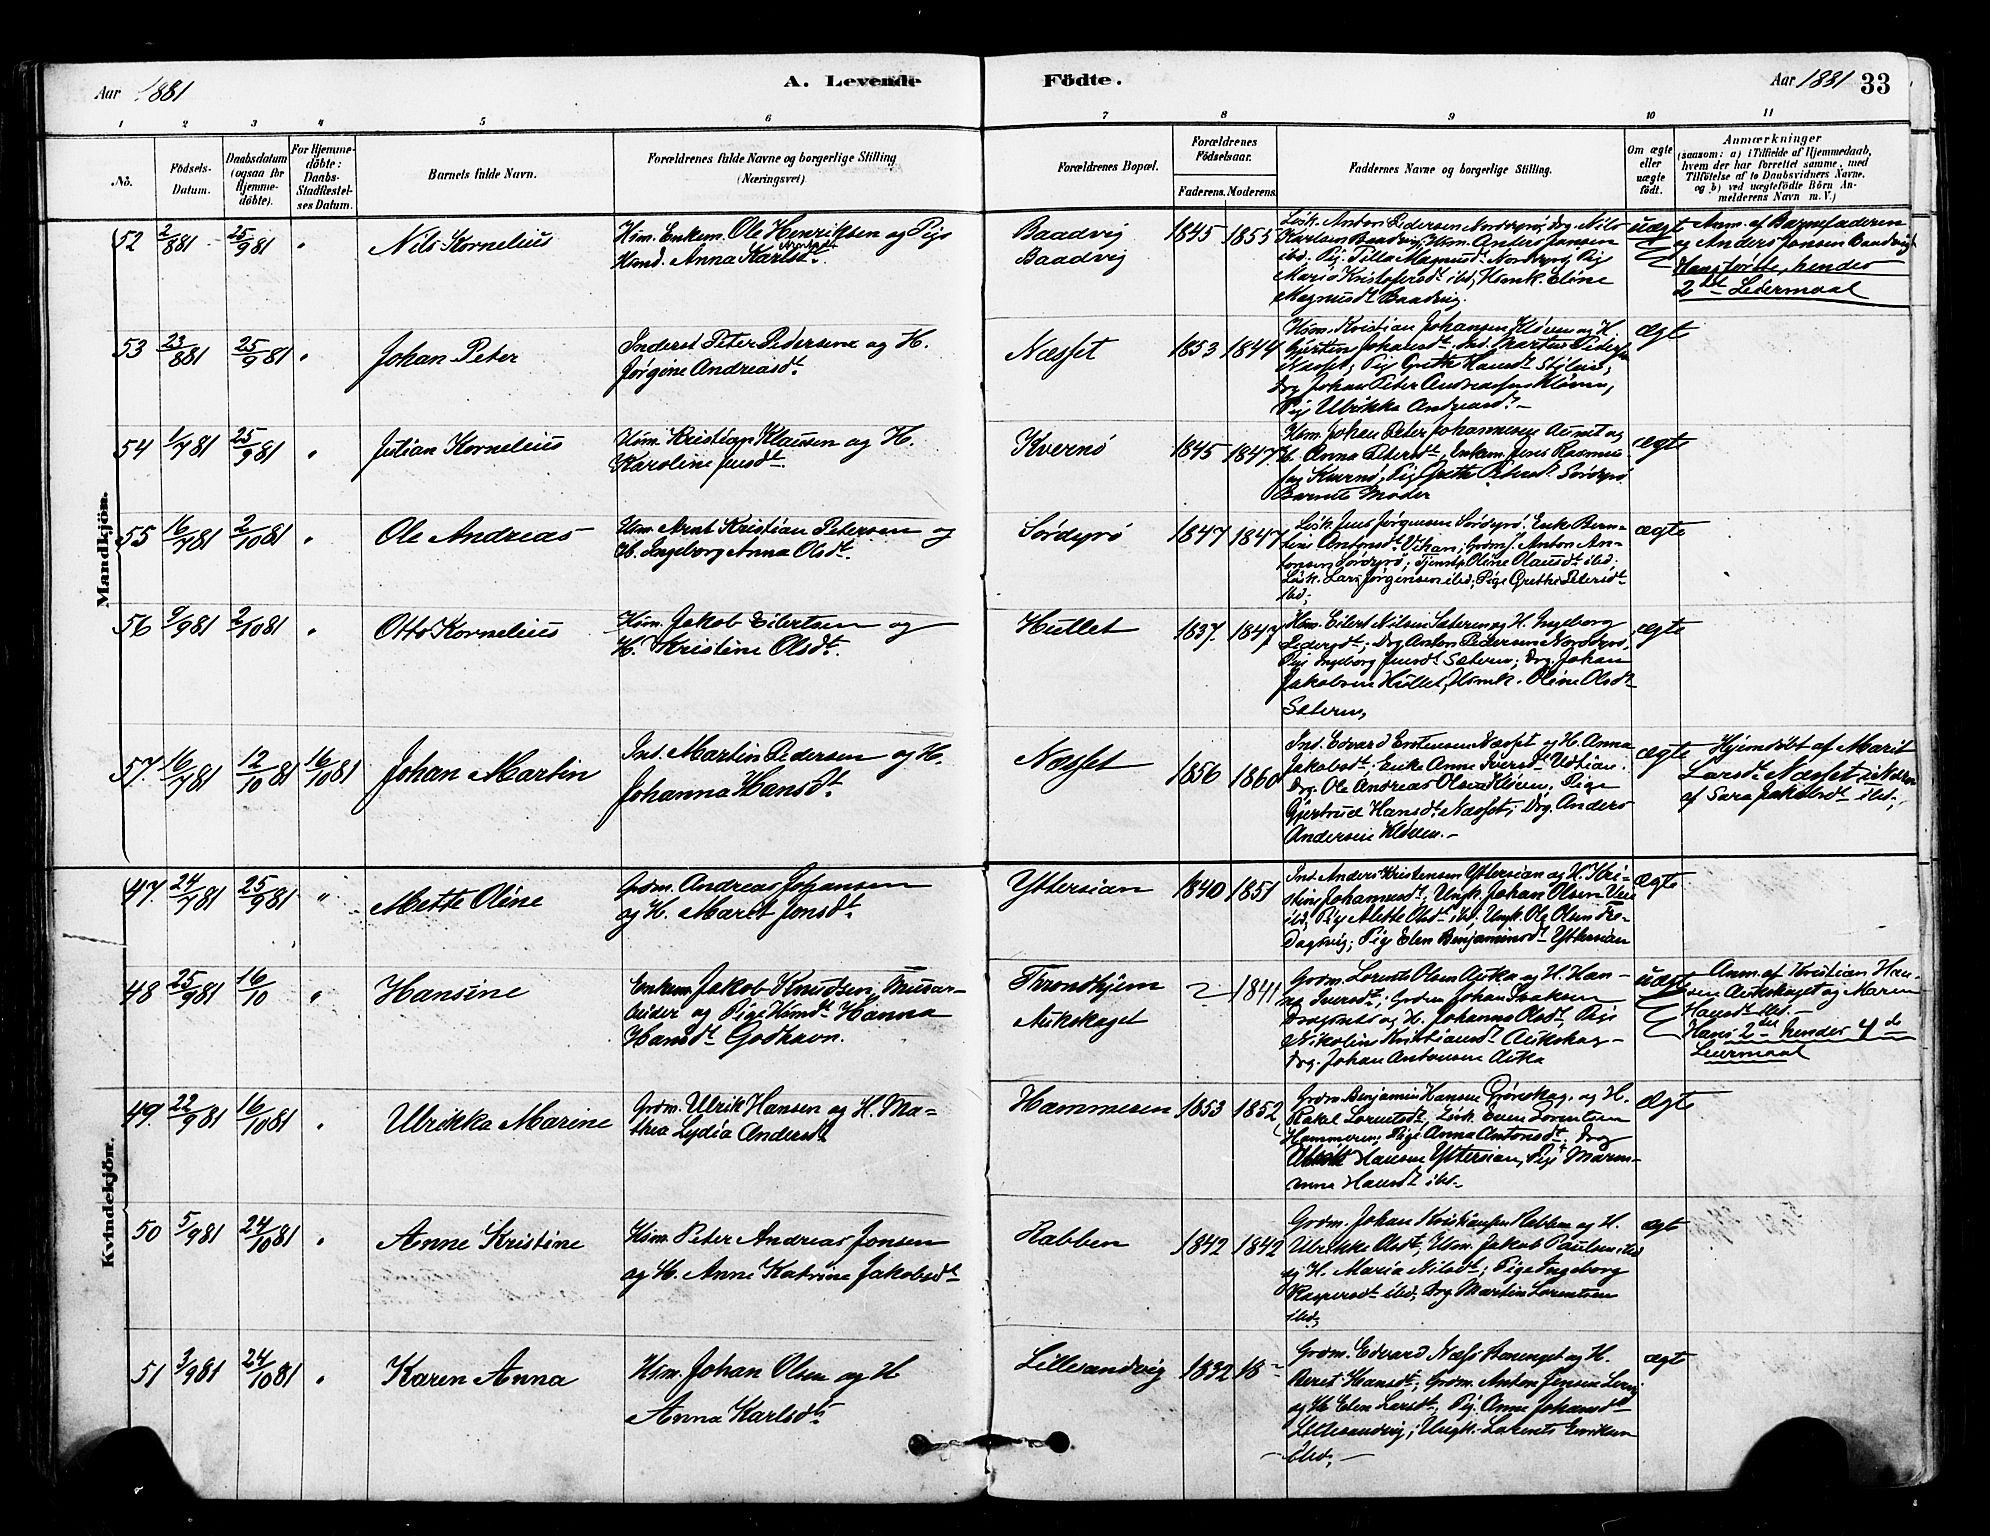 Aar 1881 A. Levende Födte. Aar 1881 33
1 2 3 4 5 6 7 8 9 10 11
No. Födsels-Datum. Daabsdatum (ogsaa for Hjemmedöbte). For Hjemmedöbte: Daabs-Stadfæstelses Datum. Barnets fulde Navn. Forældrenes fulde Navne og borgerlige Stilling (Næringsvei). Forældrenes Bopæl. Forældrenes Födselsaar. Faderens. Moderens. Faddernes Navne og borgerlige Stilling. Om ægte eller uægte födt. Anmærkninger (saasom: a) i Tilfælde af Hjemmedaab, hvem der har forrettet samme, med Tilföielse af to Daabsvidners Navne, og b) ved uægtefödte Börn Anmelderens Navn m. V.)
Mandkjön.
52 2/881 25/981 " Nils Kornelius
Hsm. Enkem. Ole Henriksen og Pige
Hsmd. Anna Karlsdt.
Baadvig
Baadvig
1845 1855
Lösk. Anton Pedersen Nordyrö, Drg. Nils
Karlsen Baadvig, Hsm. Anders Jonsen
ibd. Pig. Pilla Magnusdt. Nordyrö, Pig.
Maria Kristofersdt ibd, Hsmk. Eline
Magnusdt Baadvig.
uægte
Anm. af Barnefaderen
og Anders Jonsen Baadvig
Hans förste, hendes
2det Leiermaal
53 23/881 25/981 " Johan Peter
Inderst Peter Pedersen og H.
Jörgine Andreasdt.
Næsset
1853 1844
Hsm. Kristian Johansen Klöven og H.
Gjertine Johansdt. Ind. Martin Peders.
Næsset; Pig Grethe Hansdt
Drg Johan Peter Andreassen Klöven,
Pig Ulrikka Andreasdt. –
ægte
54 1/781 25/981 " Julian Kornelius
Hsm. Kristian Klausen og H.
Karoline Jensdt.
Kvernö
1845 1847
Hsm. Johan Peter Johannesen Aunet og
H. Anna Petersdt, Enkem. Jens Rasmus-
sen Kvernö, Pig Grethe Petersdt Sördyrö
Barnets Moder
ægte
55 16/781 2/1081 " Ole Andreas
Hsm. Arnt Kristian Petersen og
H. Ingeborg Anna Olsdt.
Sördyrö
1847 1847
Lösk. Jens Jörgensen Sördyrö. Enke Bern-
tine Antonsdt. Vikan; Grdm. Anton An-
tonsen Sördyrö; Tjenstp. Oline Olausdt ibd;
Lösk. Lars Jörgensen ibd; Pige Grethe Petersdt
ibd;
ægte
56 9/981 2/1081 " Otto Kornelius
Hsm. Jakob Eilertsen og
H. Kristine Olsdt.
Hullet
1837. 1847
Hsm. Eilert Nilsen Sæteren og H. Ingeborg
Pedersdt; Drg Anton Pedersen Nordyrö,
Pig Ingeborg Jensdt Sæteren; Drg. Johan
Jakobsen Hullet, Hsmk. Oline Olsdt
Sæteren,
ægte
57. 16/781 12/1081 16/1081 Johan Martin
Ind. Martin Pedersen og H.
Johanna Hansdt.
Næsset
1856 1860
Ind. Edvard Erntsen Næsset og H. Anna
Jakobsdt. Enke Anne Iversdt Udtian.
Drg. Ole Andreas Olsen Klöven; Pige
Gjertrud Hansdt. Næsset; Drg. Anders
Andersen Klöven. –
ægte
Hjemdöbt af Marit
Larsdt. Næsset,
af Sara Jakobsdt ibd.,
Kvindekjön.
47. 24/781 25/981 " Mette Oline
Grdm. Andreas Johansen
og H. Maret Jonsdt.
Yttersian
1840 1851
Ind. Anders Kristensen Yttersian og H. Kri-
stine Johannesdt, Ungk. Johan Olsen
ibd, Pige Alette Olsdt ibd. Ungk. Ole Olsen
Dagsvig; Pige Elen Benjaminsdt Yttersian
ægte
48 25/981 16/10 " Hansine
Enkem. Jakob Knudsen,
og Pige Hsmdt Hanna
Hansdt Godhavn.
Throndhjem
Aukskaget
2 1841
Grdm. Lorents Olsen Auka og H. Han-
na Iversdt; Grdm Johan Isaksen
og H. Johanna Olsdt, Pige
Nikoline Kristiansdt Aukskag –
Drg. Johan Antonsen Auka
uægte
Anm. af Kristian Han-
sen Aukskaget og Maren
Hansdt ibd. –
Hans 2den hendes 4de
Leiermaal
49. 22/981 16/1081 " Ulrikka Marine
Grdm. Ulrik Hansen og H. Ma-
thea Lydia Andersdt
Hammeren
1853 1852
Grdm Benjamin Hansen Grönskag og H.
Rakel Lorentsdt; Lösk. Even Lorentsen
Hammeren; Pige Anna Antonsdt. Drg
Hansen Yttersian, Pige Maren-
anna Hansdt ibd.
ægte
50 5/981 24/1081 " Anne Kristine
Hsm. Peter Andreas Jonsen
og H. Anne Katrine Jakobsdt
Rabben
1842 1842
Grdm. Johan Kristiansen Rabben og H.
Ulrikke Olsdt; Hsm. Jakob Paulsen ibd
og H. Maria Nilsdt; Pige Ingeborg
Kaspersdt ibd; Drg Martin Lorentsen
ibd;
ægt
51 3/981 24/1081 " Karen Anna
Hsm. Johan Olsen og H
Anna Karlsdt
Lillesandvig
1832 18–
Grdm. Edvard Næss og H.
Beret Hansdt; Grdm. Anton Jensen
og H. Elen Larsdt; Pig. Anne Johansdt
Lillesandvig; Ungk. Lorents Eriksen
– ibd. –
ægt